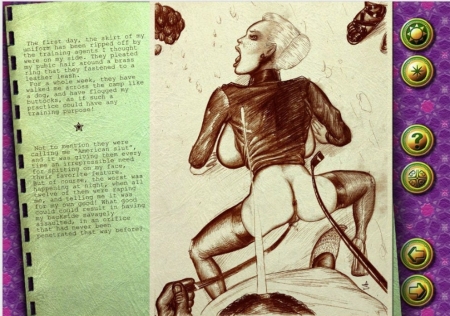 The first day, the skirt of my
uniform has been ripped off by
the training agents I thought
were on my side. They pleated
my pubic hair around a brass
ring that they fastened to a
leather leash.
For a whole week, they have
walked me across the camp like
a dog, and have flogged my
buttocks, as if such a
practice could have any
training purpose!
Not to mention they were
calling me "American slut",
and it was giving them every
time an irrepressible need
for spitting on my face,
their favorite feature.
But of course, the worst was
happening at night, when all
twelve of them were raping
me, and telling me it was
for my own good! What good
could could result in having
my backside savagely
assaulted, in an orifice
that had never been
penetrated that way before!
?